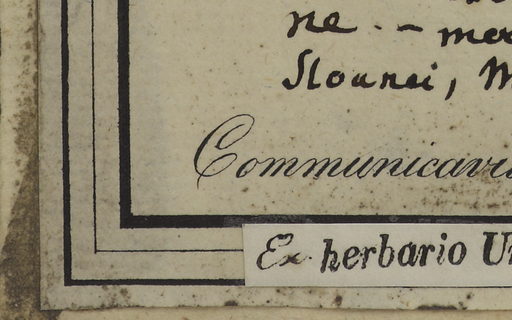 ne. - mo
Sloanei, M
Communicavi
Ex herbario U